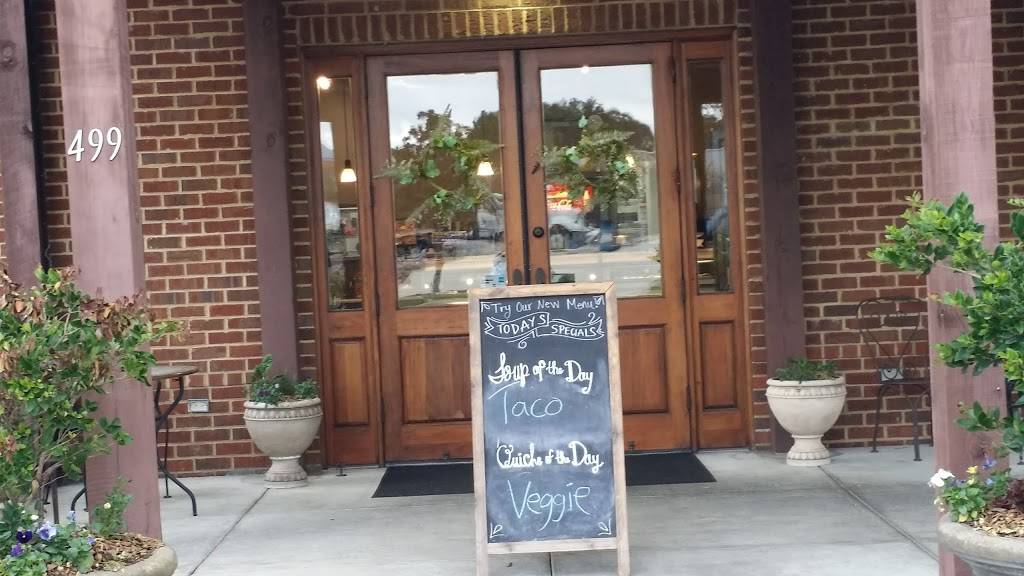 499
Try Our New Menu
TODAY'S SPECIALS
Soup of the Day
Taco
Quiche of the Day
Veggie